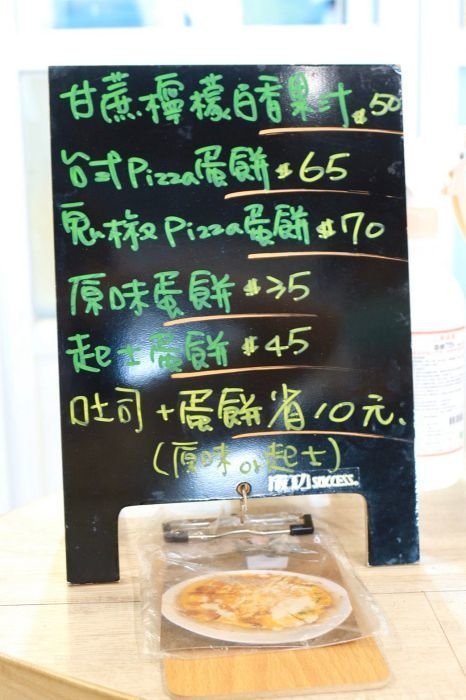 甘蔗檸檬百香果汁 $50
台式Pizza蛋餅 $65
鬼椒Pizza蛋餅 $70
原味蛋餅 $35
起士蛋餅 $45
吐司+蛋餅省10元.
(原味or起士)
成功 success®